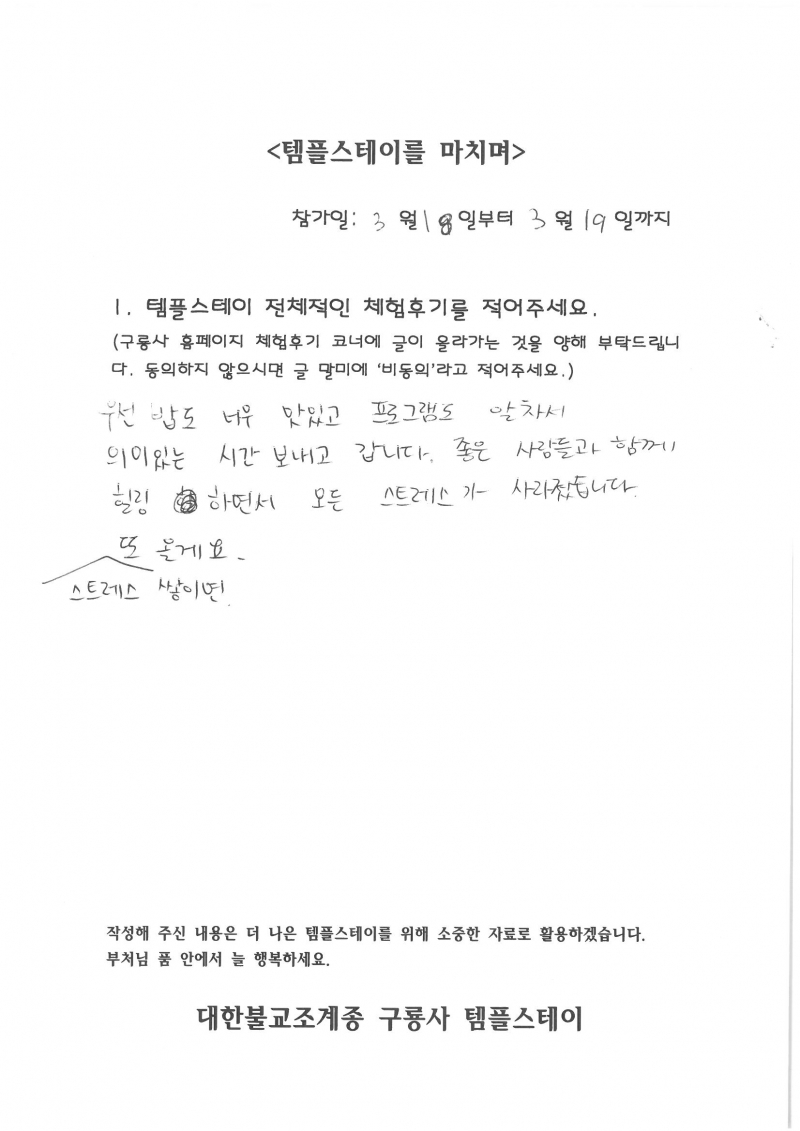 <템플스테이를 마치며>
참가일: 3 월 18 일부터 3 월 19 일까지
1. 템플스테이 전체적인 체험후기를 적어주세요.
(구룡사 홈페이지 체험후기 코너에 글이 올라가는 것을 양해 부탁드립니
다. 동의하지 않으시면 글 말미에 '비동의'라고 적어주세요.)
우선 밥도 너무 맛있고 프로그램도 알차서
의미있는 시간 보내고 갑니다. 좋은 사람들과 함께
힐링 하면서 모든 스트레스가 사라졌습니다.
또 올게요.
스트레스 쌓이면
작성해 주신 내용은 더 나은 템플스테이를 위해 소중한 자료로 활용하겠습니다.
부처님 품 안에서 늘 행복하세요.
대한불교조계종 구룡사 템플스테이